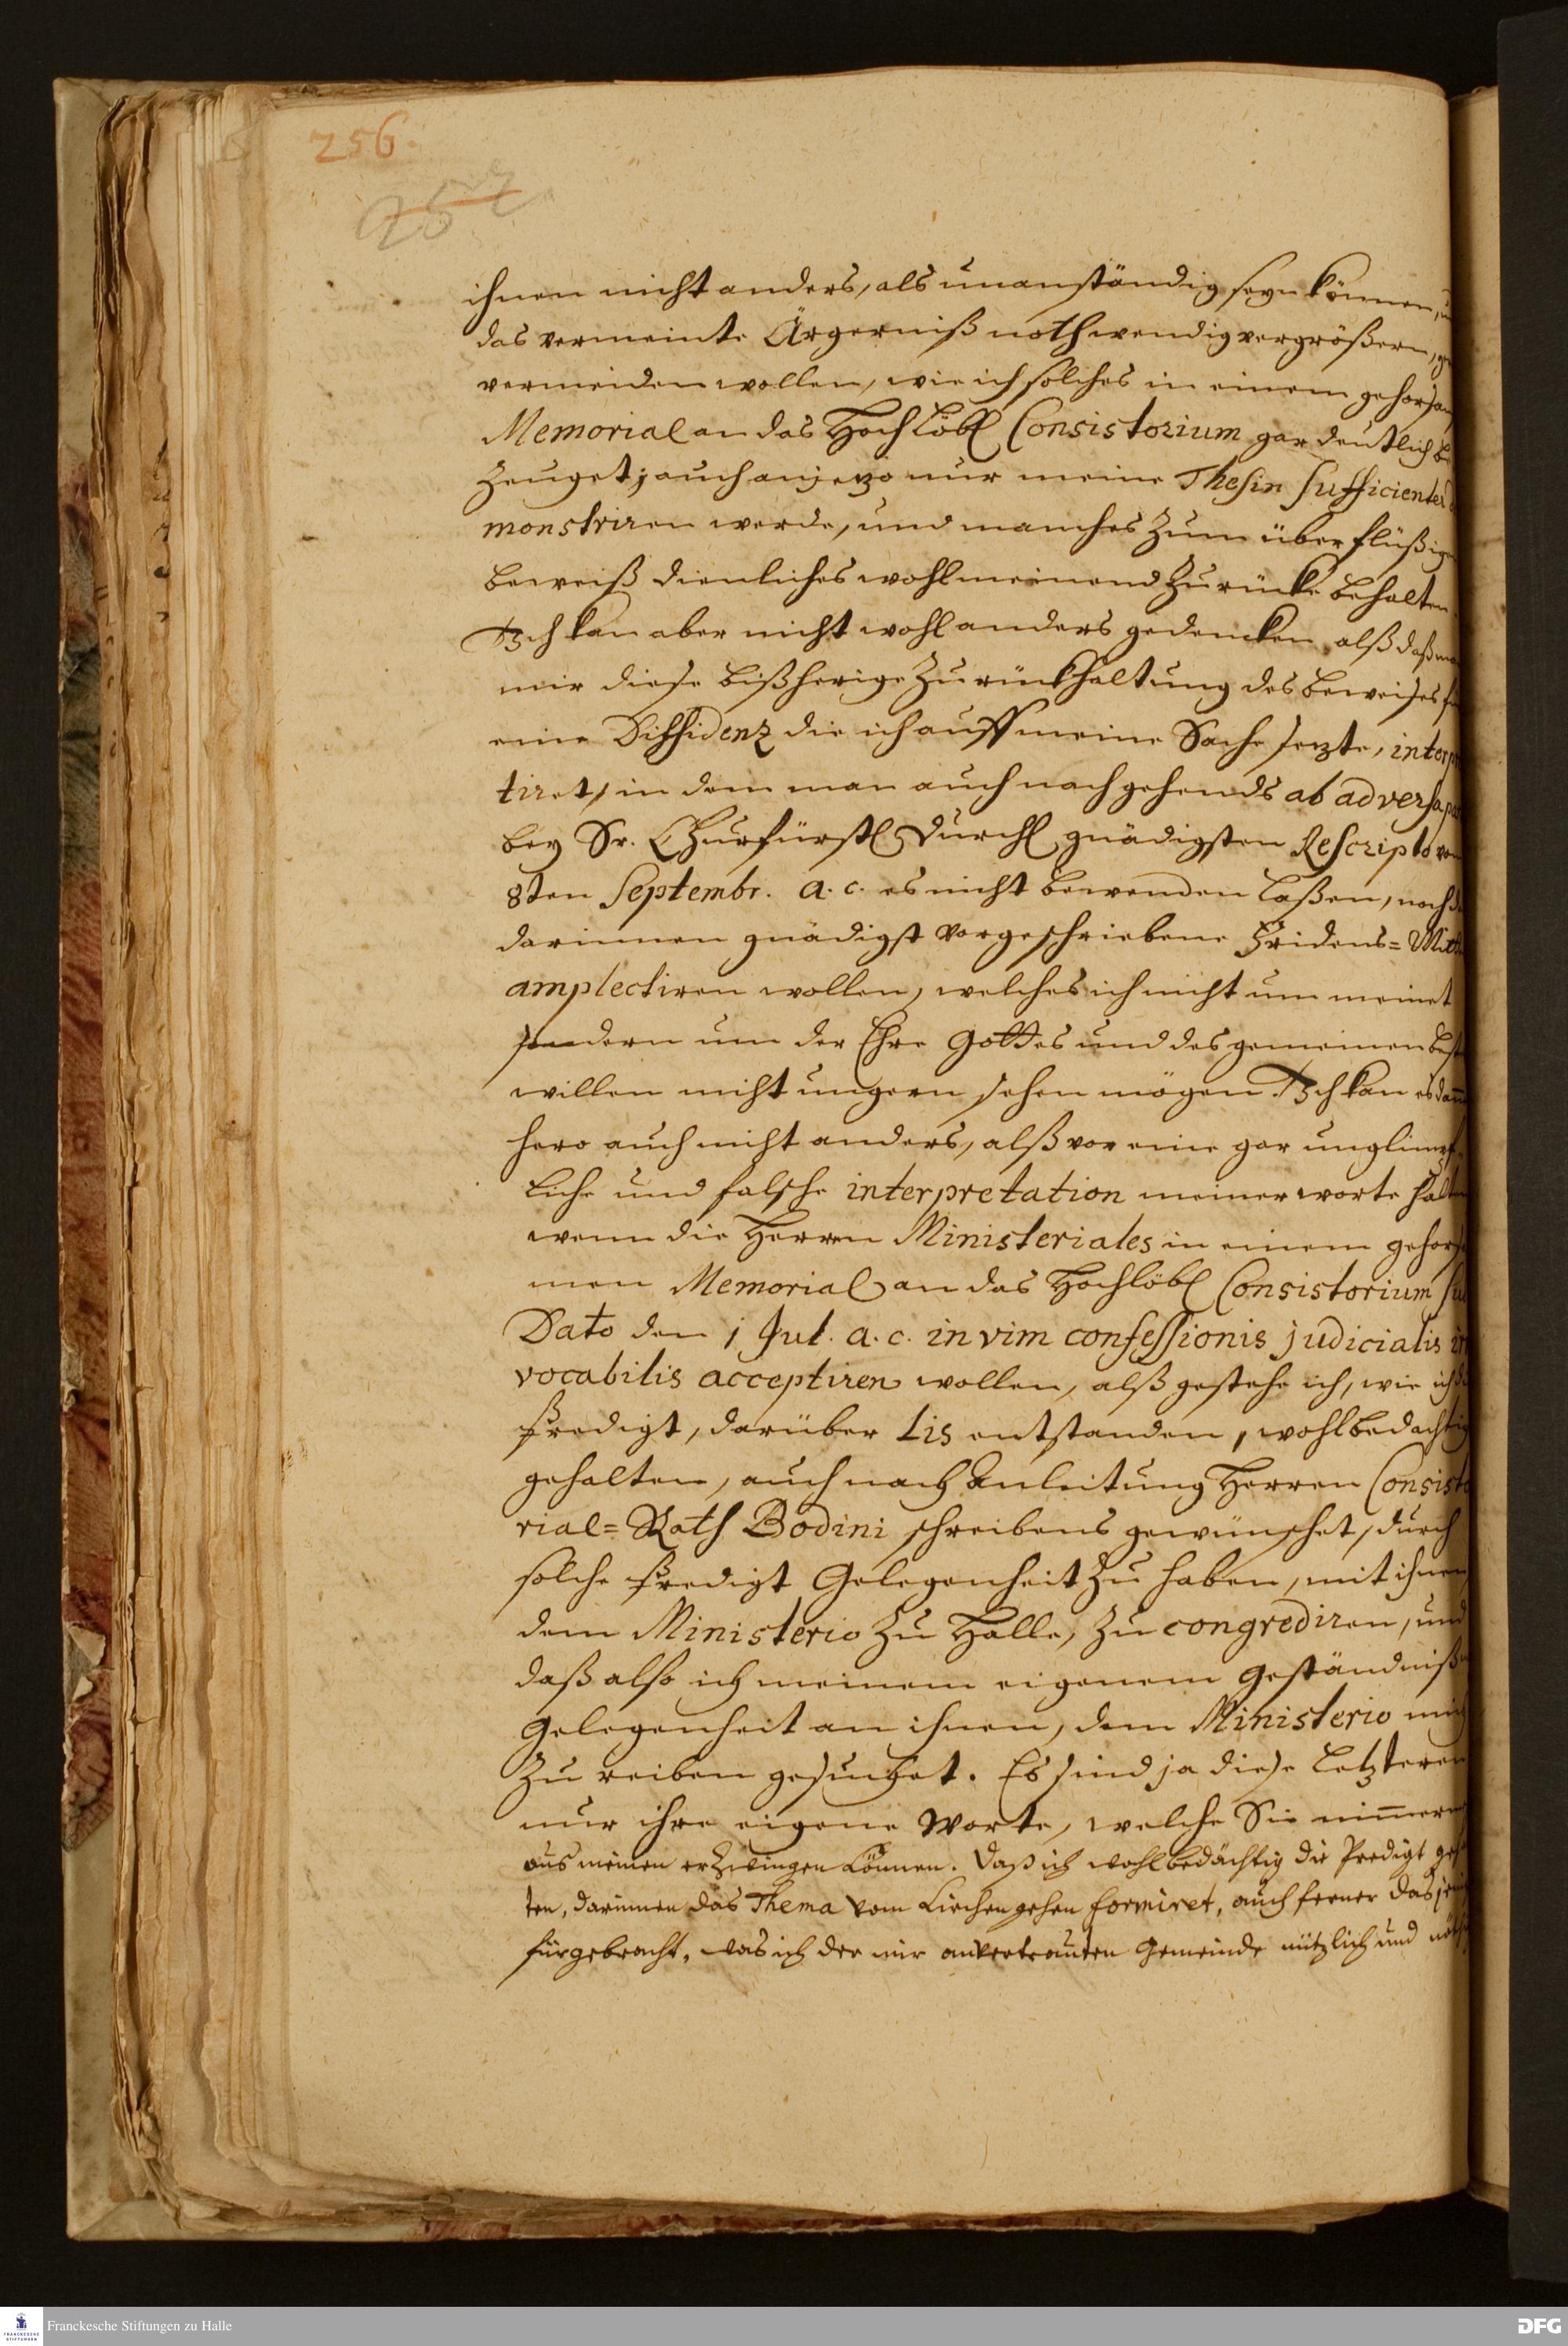 256.
252
ihnen nicht anders, als unanständig seyn können, u
das vermeinte Ärgerniß nothwendig vergrößern, ge
vermeiden wollen, wie ich solches in einem gehorsam
Memorial an das Hochlöbl Consistorium gar deutlich be
zeuget; auch anjezo nur meine Thesin sufficienter
monstriren werde, und manches zum überflüßigen
beweiß dienliches wohlmeinend zurücke behalten.
Ich kan aber nicht wohl anders gedencken, alß daß man
mir diese bißherige Zurückhaltung des beweises für
eine Diffidenz die ich auff meine Sache sezte, interpre
tiret, in dem man auch nachgehends ab adversa par
bey Sr. Churfürstl Durchl gnädigsten Rescripto vom
8ten Septembr. a. c. es nicht bewenden laßen, noch d
darinnen gnädigst vorgeschriebene Fridens= Mitt
amplectiren wollen, welches ich nicht um meinet
sondern um der Ehre Gottes und des gemeinen best
willen nicht ungern sehen mögen. Ich kan es dann
hero auch nicht anders, alß vor eine gar unglimpf
liche und falsche interpretation meiner worte halten
wenn die Herren Ministeriales in einem gehorsa
men Memorial an das Hochlöbl Consistorium su
Dato den 1 Jul. a. c. in vim confessionis judicialis ir
vocabilis acceptiren wollen, alß gestehe ich, wie ich d
Predigt, darüber Lis entstanden, wohlbedächtig
gehalten, auch nach Anleitung Herren Consisto
rial= Rath Bodini schreibens gewünschet, durch
solche Predigt Gelegenheit zu haben, mit ihnen
dem Ministerio zu Halle, zu congrediren, und
daß also ich meinem eigenem Geständniß
Gelegenheit an ihnen, dem Ministerio mich
zu reiben gesuchet. Es sind ja diese Letzteren
nur ihre eigene Worte, welche Sie nimmer
aus meinen erzwingen können. Daß ich wohlbedächtig die Predigt geh
ten, darinnen das Thema vom Kirchengehen formiret, auch ferner das jenige
fürgebracht, was ich der mir anvertrauten Gemeinde nützlich und nöth
Franckesche Stiftungen zu Halle
FRANCKESCHE STIFTUNGEN
DFG